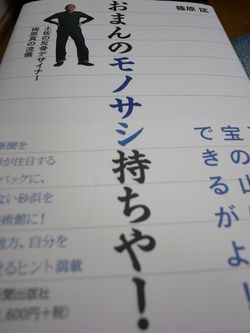 篠原 匡
おまんのモノサシ持ちや!
土佐の反骨デザイナー
梅原真の流儀
宝の山に
できるがよ
新聞を
が注目する
バッグに、
ない砂浜を
術館に!
地方、自分を
せるヒント満載
聞出版社
,600円+税)